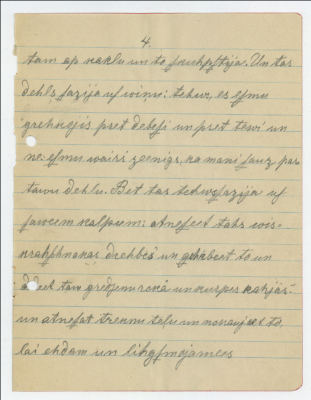 4.
tam ap kaklu un to skuhpstija. Un tas
dehls sazija us winu: tehws, es esmu
grehkojis pret debesi un pret tewi un
ne esmu wairs zeenigs, ka mani sauz par
tawu dehlu. Bet tas tehws sazija us
saweem kalpeem: atnesect tahs wis-
krahschnakas drehbes un gehrbeet to un
dodeet tam gredzenu rokâ un kurpes kahjâs
un atnesat trekno telu un nokaujeet to,
lai ehdam un lihgsmojamees